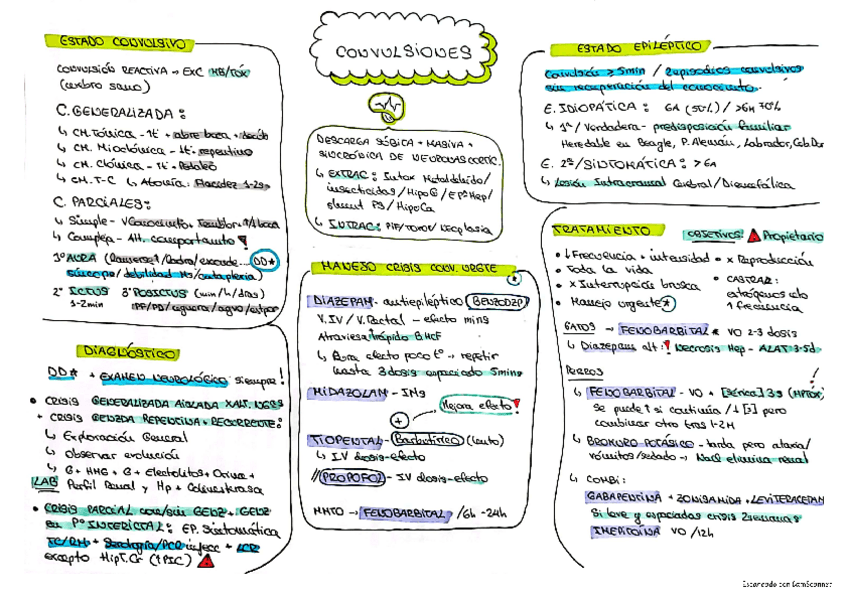 CONVULSIONES
DESCARGA SÚBITA + MASIVA +
SINCRÓNICA DE NEURONAS CORTIC.
↳ EXTRAC: Intox Metaldehído/
insecticidas/HipoG/EPªHep/
/HipoCa
↳ INTRAC: PIF/TOXO/NEOPLASIA
ESTADO CONVULSIVO
CONVULSIÓN REACTIVA → EXC MB/TÓX
(cerebro sano)
C. GENERALIZADA:
↳ CM. Tónica - 1t + abre boca +
↳ CM. Mioclónica - 1t - repentino
↳ CM. Clónica - 1t - Pataleo
↳ CM. T-C ↳ Atonía: Flacidez 1-2sg
C. PARCIALES:
↳ Simple - V Conocimto + Temblor
↳ Compleja - Alt. comportamto !
1º AURA (DD*
síncope/debilidad Ms/cataplexia)
2º ICTUS 3º POSICTUS (min/h/días)
1-2min PF/PD/
DIAGNÓSTICO
DD* + EXAMEN NEUROLÓGICO siempre!
• CRISIS GENERALIZADA AISLADA
+ CRISIS GENZDA REPENTINA + RECURRENTE:
↳ Exploración General
↳ Observar evolución
↳ G + HMG + G + Electolitos + Orina +
LAB Perfil Renal y Hp + Colinesterasa
• CRISIS PARCIAL con/sin GENZ + GENZ
en Pº INTERICTAL: EP. Sintomática
TC/RM + Serología/PCR infecc + LCR
excepto HipT.Cr (↑PIC)
MANEJO CRISIS CONV. URGTE *
DIAZEPAM - antiepiléptico (BENZODZP)
V. IV / V. Rectal - efecto mins
Atraviesa rápido BHCF
↳ Dura efecto poco tº → repetir
hasta 3 dosis espaciado 5mins
MIDAZOLAM - IMs
+ Mejora efecto !
TIOPENTAL - Barbitúrico (lento)
↳ I.V dosis-efecto
// PROPOFOL - IV dosis-efecto
MNTO → FENOBARBITAL /6h -24h
ESTADO EPILÉPTICO
Convulsión ≥ 5min / 2 episodios convulsivos
sin recuperación del conocimto.
E. IDIOPÁTICA: 6A (50%) / >6M 70%
↳ 1ª/Verdadera - predisposición familiar
Heredable en Beagle, P. Alemán, Labrador,
E. 2ª/SINTOMÁTICA: >6A
↳ Lesión Intracraneal Cerebral/Diencefálica
TRATAMIENTO OBJETIVOS: Propietario
• ↓ Frecuencia + intensidad • x Reproducción
• Toda la vida
• x Interrupción brusca • CASTRAR:
• Manejo urgente * estrógenos
↑ frecuencia
GATOS → FENOBARBITAL * VO 2-3 dosis
↳ Diazepam alt: ! Necrosis Hep - ALAT 3-5d
PERROS !
↳ FENOBARBITAL - VO + [Sérica] 3s (HPTOX)
Se puede ↑ si continúa /↓ [ ] pero
combinar otro tras 1-2M
↳ BROMURO POTÁSICO - tarda pero ataxia/
vómitos/sedado → NaCl elimina renal
↳ COMBI:
GABAPENTINA + ZONISAMIDA + LEVITERACETAM
Si leve y espaciadas crisis 2 semanas
IMEPITOINA VO /12h
Escaneado con CamScanner